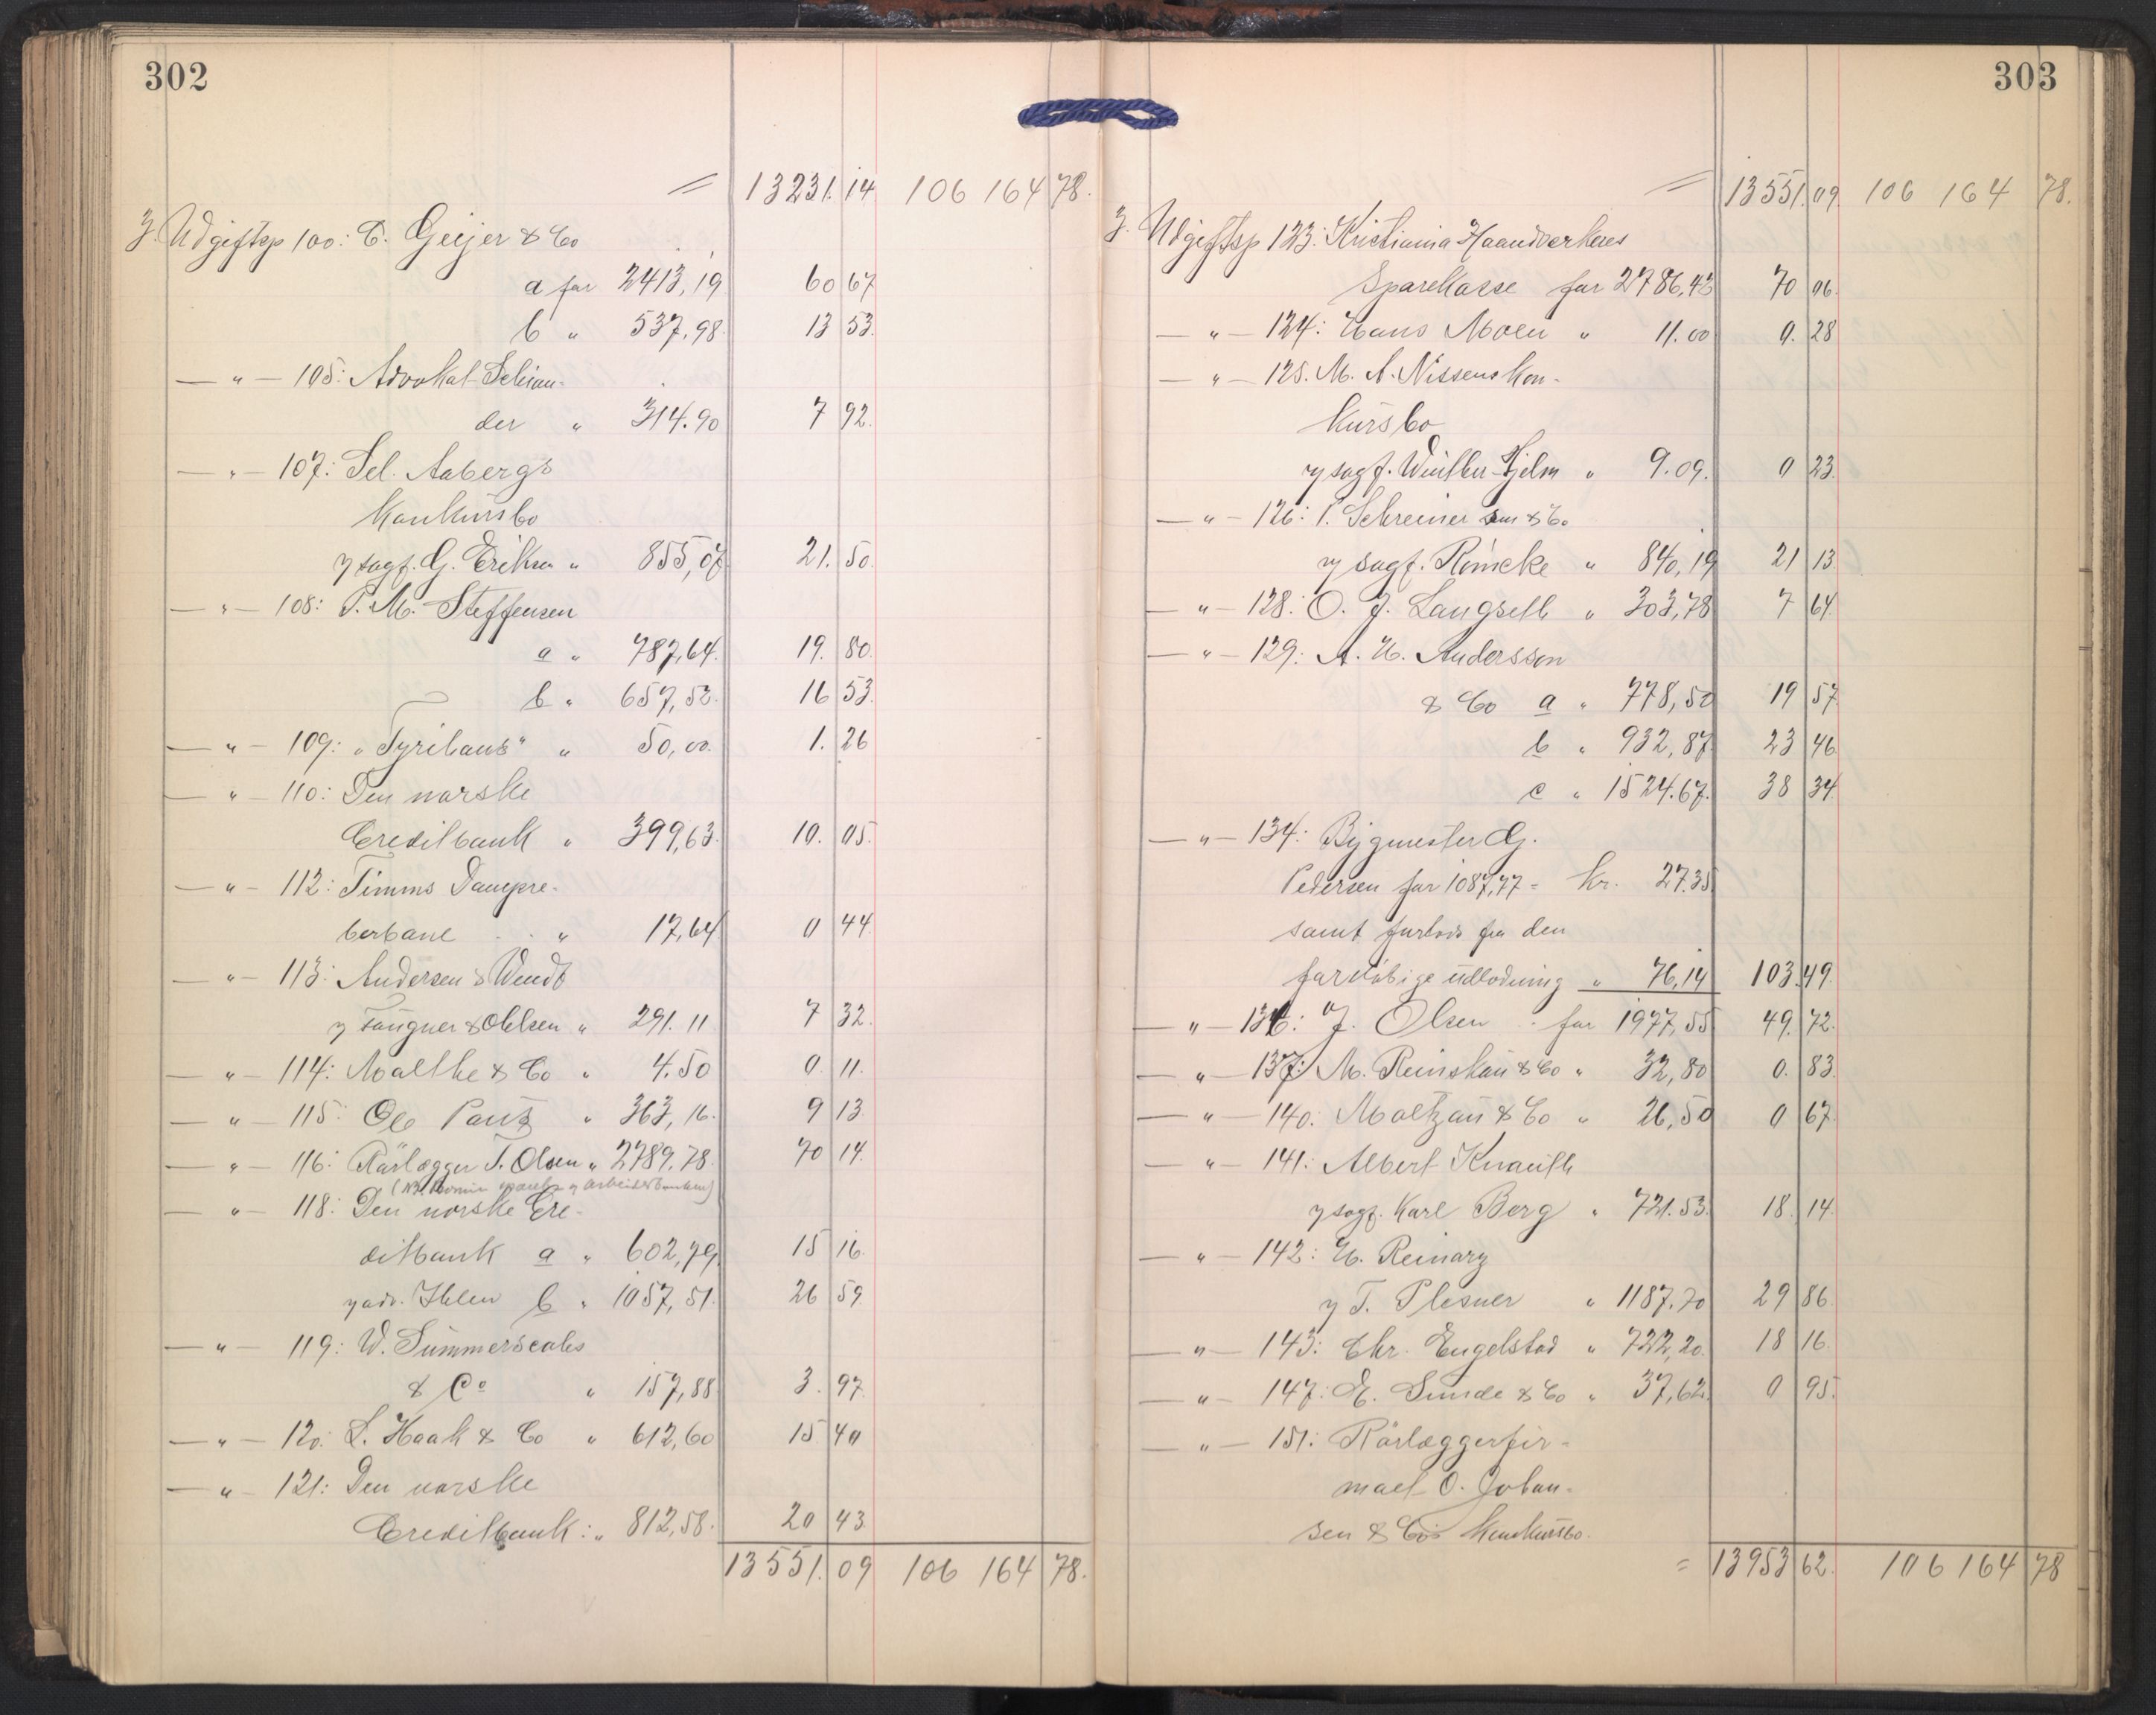 302
= 13231.14 106 164 78.
Udgiftsp 100: C. Geijer & Co
a for 2413,19 60 67
b " 537,98. 13 53.
— " — 105: Advokat Schian-
der " 314.90 7 92.
— " — 107: Sel. Aabergs
Konkursbo
sagf. G. Eriksen " 855,07 21. 50.
— " — 108: P. M. Steffensen
a " 787,64. 19. 80.
b " 657,53. 16 53.
— " — 109: "Tyrihans" " 50,00. 1. 26
— " — 110: Den norske
Creditbank " 399,63. 10. 05.
— " — 112: Timms Dampre-
berbane " 17,64 0 44.
— " — 113: Andersen & Wendt
Fougner & Ohlsen " 291.11 7 32.
— " — 114: Malthe & Co " 4.50 0. 11.
— " — 115: Ole Pauz " 363,16. 9 13
— " — 116: Rørlægger T. Olsen " 2789.78. 70 14.
— " — 118: Den norske Cre-
ditbank a " 602,79. 15 16.
adv. Ihlen b " 1057,51. 26 59.
— " — 119: W. Summerscales
& Co " 157,88 3. 97.
— " — 120: L. Haak & Co " 612,60 15 40
— " — 121: Den norske
Creditbank: " 812,58. 20 43
13551.09 106 164 78.
303
= 13551.09 106 164 78.
Udgiftsp 123: Kristiania Haandverkeres
Sparekasse for 2786,43 70 06.
— " — 124: Hans Moen " 11.00 0. 28
— " — 125. M. A. Nissens Kon-
kursbo
sagf. Winther-Hjelm " 9.09. 0 23.
— " — 126: P. Schreiner sen & Co
sagf. Römcke " 840,19 21 13.
— " — 128: O. J. Langseth " 303,78 7 64.
— " — 129: A. H. Andersson
& Co a " 778,50 19 57.
b " 932,87. 23 46.
c " 1524.67. 38 34
— " — 134: Bygmester G.
Pedersen for 1087,77 = Kr. 27.35
samt forlods fra den
foreløbige udlodning " 76,14 103.49.
— " — 136: J. Olsen for 1977,55 49.72.
— " — 137: M. Reinskau & Co " 32,80 0. 83.
— " — 140: Moltzau & Co " 26,50 0 67.
— " — 141: Albert Knauth
sagf. Karl Berg " 721.53. 18. 14.
— " — 142: H. Reinarz
T. Plesner " 1187.70 29 86.
— " — 143: Chr. Engelstad " 722,20. 18 16
— " — 147: E. Sunde & Co " 37,62. 0 95.
— " — 151: Rørlæggerfir-
maet O. Johan-
sen & Co's Konkursbo.
= 13953 62. 106 164 78